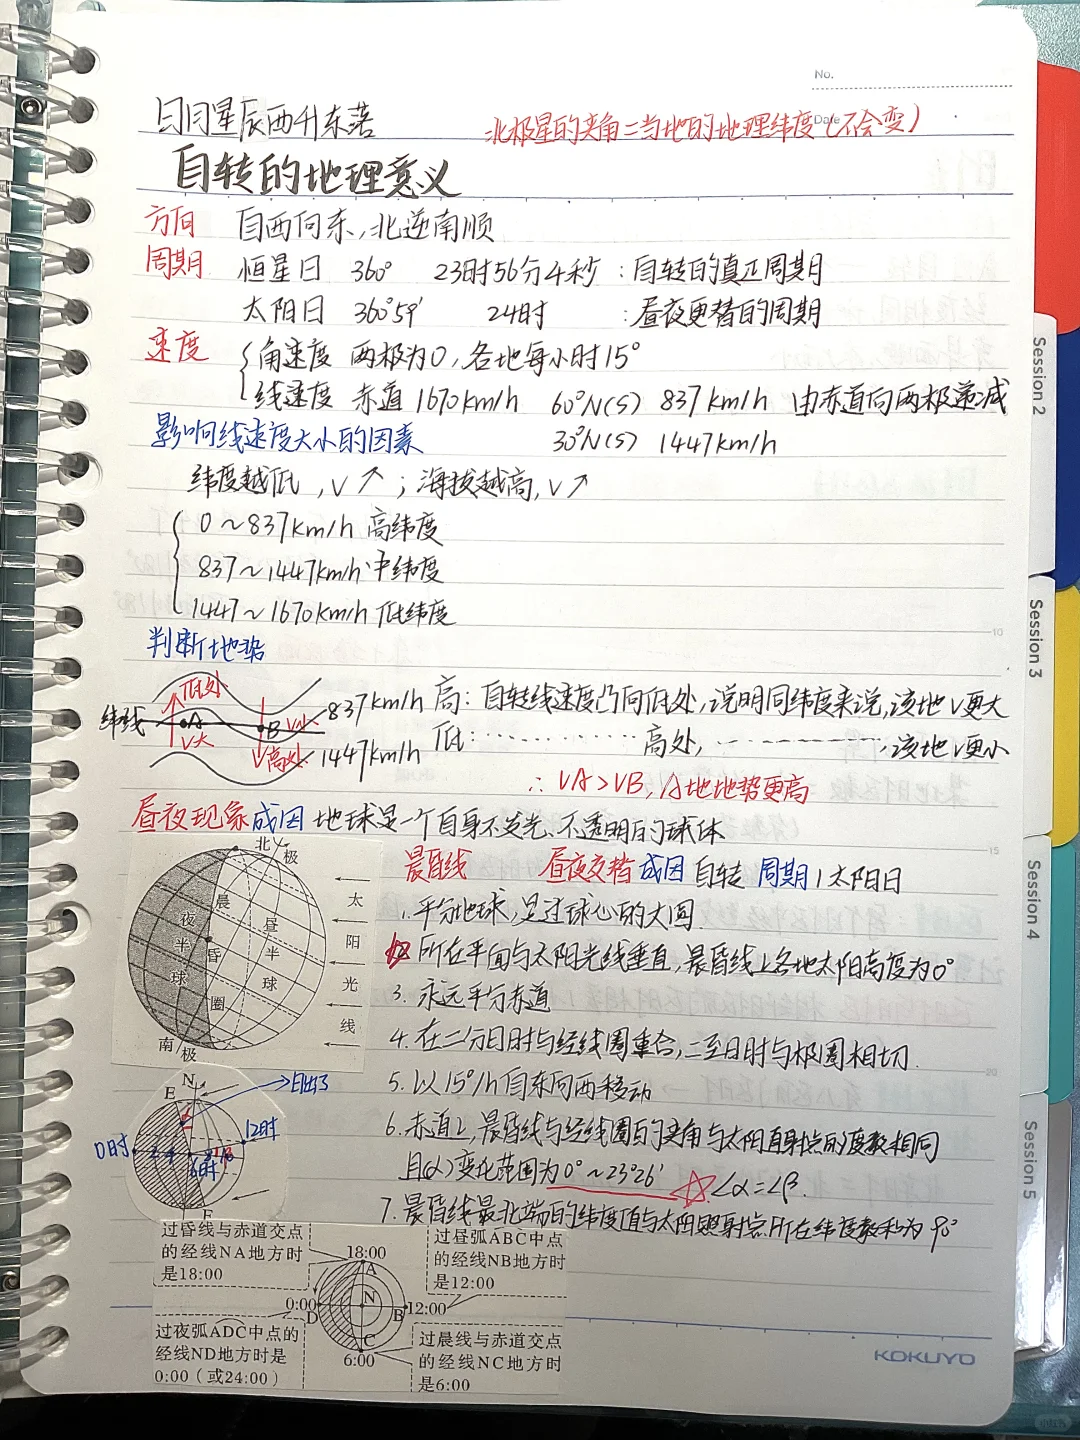 No.
Date
日月星辰西升东落
北极星的夹角=当地的地理纬度(不会变)
自转的地理意义
方向 自西向东,北逆南顺
周期 恒星日 360° 23时56分4秒:自转的真正周期
太阳日 360°59′ 24时 :昼夜更替的周期
速度 角速度 两极为0,各地每小时15°
线速度 赤道1670km/h 60°N(S) 837km/h 由赤道向两极递减
影响线速度大小的因素 30°N(S) 1447km/h
纬度越低,V↗;海拔越高,V↗
0~837km/h 高纬度
837~1447km/h 中纬度
1447~1670km/h 低纬度
判断地势
低处
纬线 A B V小 837km/h 高:自转线速度凸向低处,说明同纬度来说,该地V更大
V大 高处 1447km/h 低:…………高处,…………,该地V更小
∴VA>VB,A地地势更高
昼夜现象 成因 地球是一个自身不发光、不透明的球体
晨昏线 昼夜交替 成因 自转 周期 1太阳日
北极
晨
夜半球
昏
圈
昼半球
太阳光线
南极
1.平分地球,是过球心的大圆
所在平面与太阳光线垂直,晨昏线上各地太阳高度为0°
3.永远平分赤道
4.在二分日时与经线圈重合,二至日时与极圈相切.
5.以15°/h自东向西移动
6.赤道上,晨昏线与经线圈的夹角与太阳直射点的度数相同
且(α)变化范围为0°~23°26′ ☆∠α=∠β.
7.晨昏线最北端的纬度值与太阳照射点所在纬度数和为90°
N
E
日出了
0时
12时
6时
F
过昏线与赤道交点
的经线NA地方时
是18:00
18:00
过昼弧ABC中点
的经线NB地方时
是12:00
A
N
0:00
D
B
12:00
C
6:00
过夜弧ADC中点的
经线ND地方时是
0:00(或24:00)
过晨线与赤道交点
的经线NC地方时
是6:00
KOKUYO
Session 2
Session 3
Session 4
Session 5
10
15
20
小红书